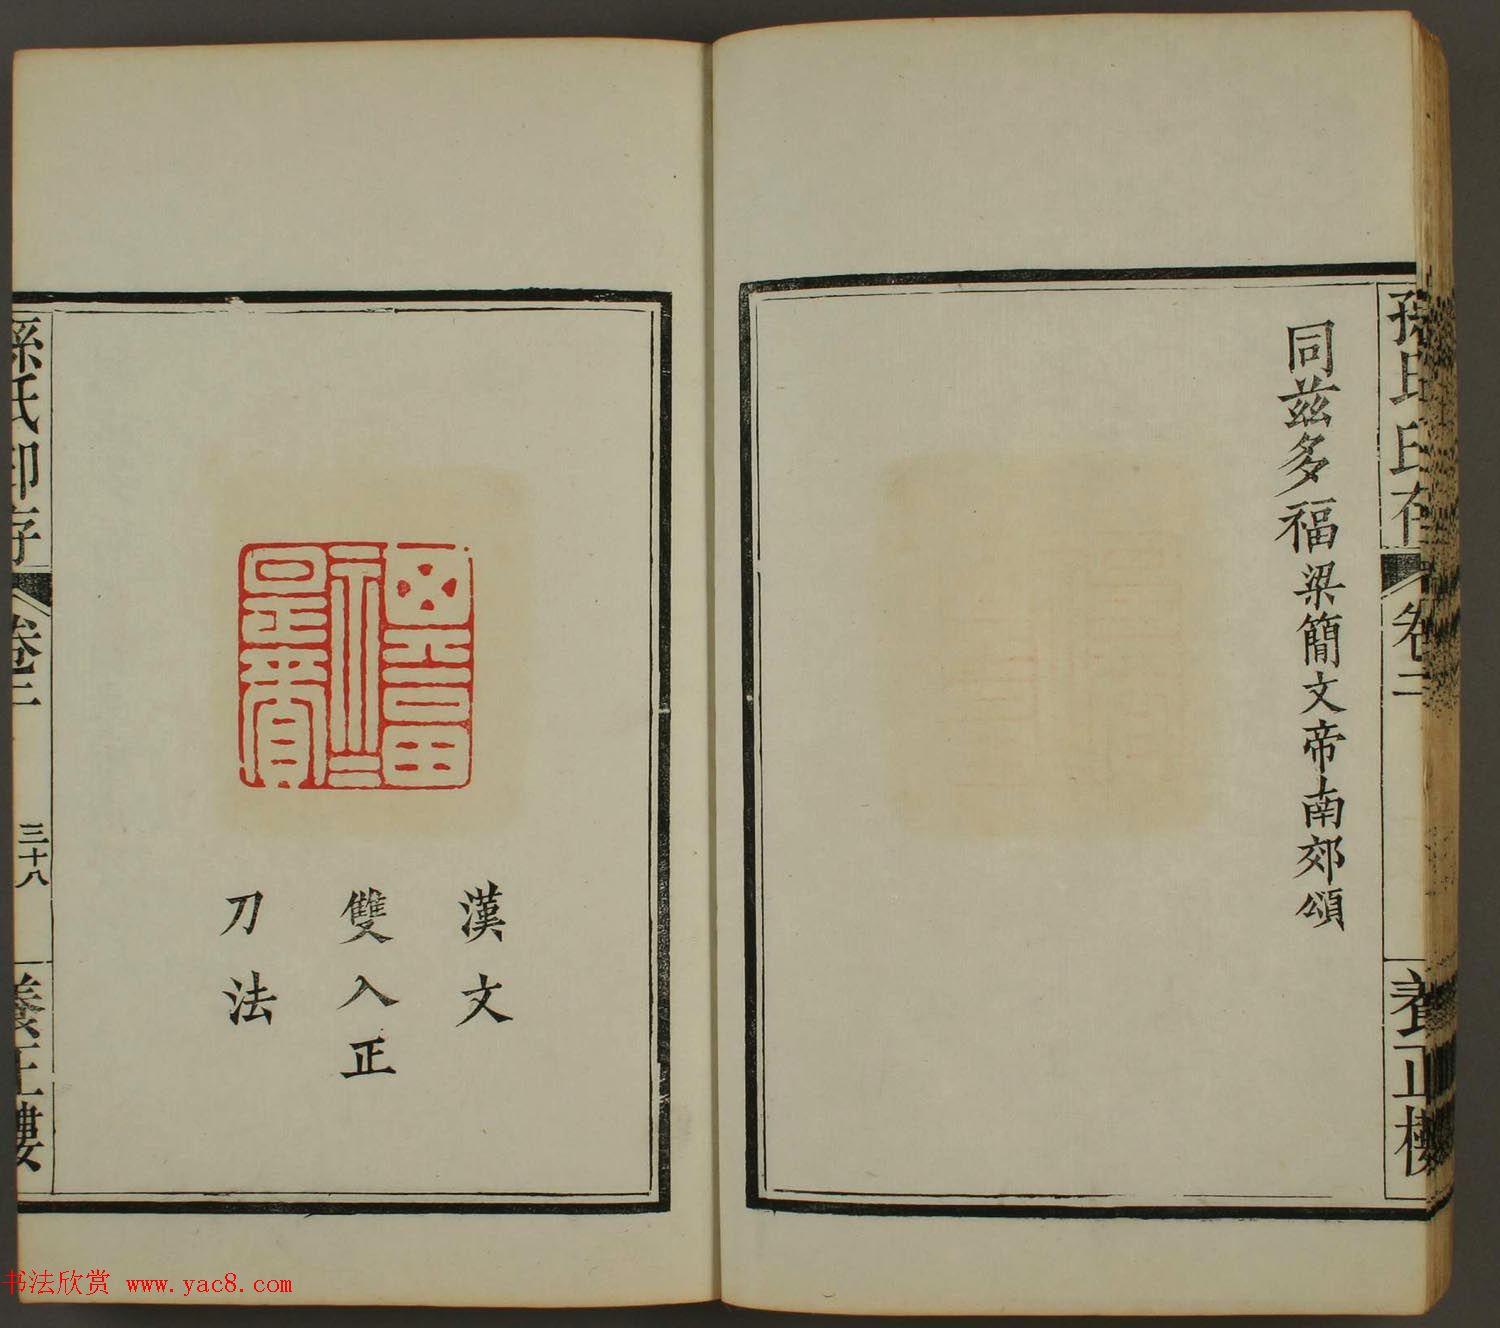 孫氏印存
卷二
養正樓
同茲多福梁簡文帝南郊頌
漢文
雙入正
刀法
孫氏印存
卷二
三十八
養正樓
书法欣赏 www.yac8.com